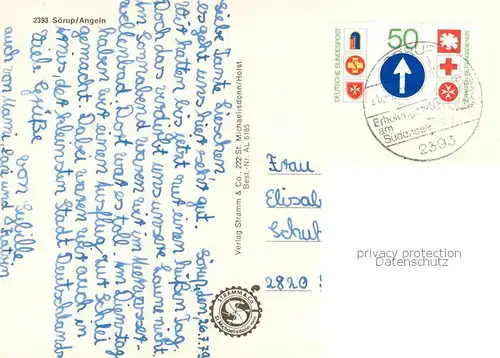 2393 Sörup/Angeln
Sörup, den 26.7.79
Liebe Tante Lieschen!
Es geht uns hier sehr gut.
Wir hatten bis jetzt nur einen heißen Tag.
Doch das verdirbt uns unsere Laune nicht.
Am Sonnabend waren wir im Meerwasser-
wellenbad. Dort war es toll. Am Dienstag
haben wir einen Ausflug mit Schlei
gemacht. Dabei waren wir auch in
Arnis, der kleinsten Stadt Deutschlands.
Viele Grüße
von Sybille
auch von Mami, Papi und
Verlag Stramm & Co., 222 St. Michaelisdonn/Holst.
Best.-Nr. AL 6185
STRAMM & CO.
DEUTSCHE BUNDESPOST
50
Erholung
am
Südensee
2393
Frau
Elisab
Schut
2820
privacy protection
Datenschutz